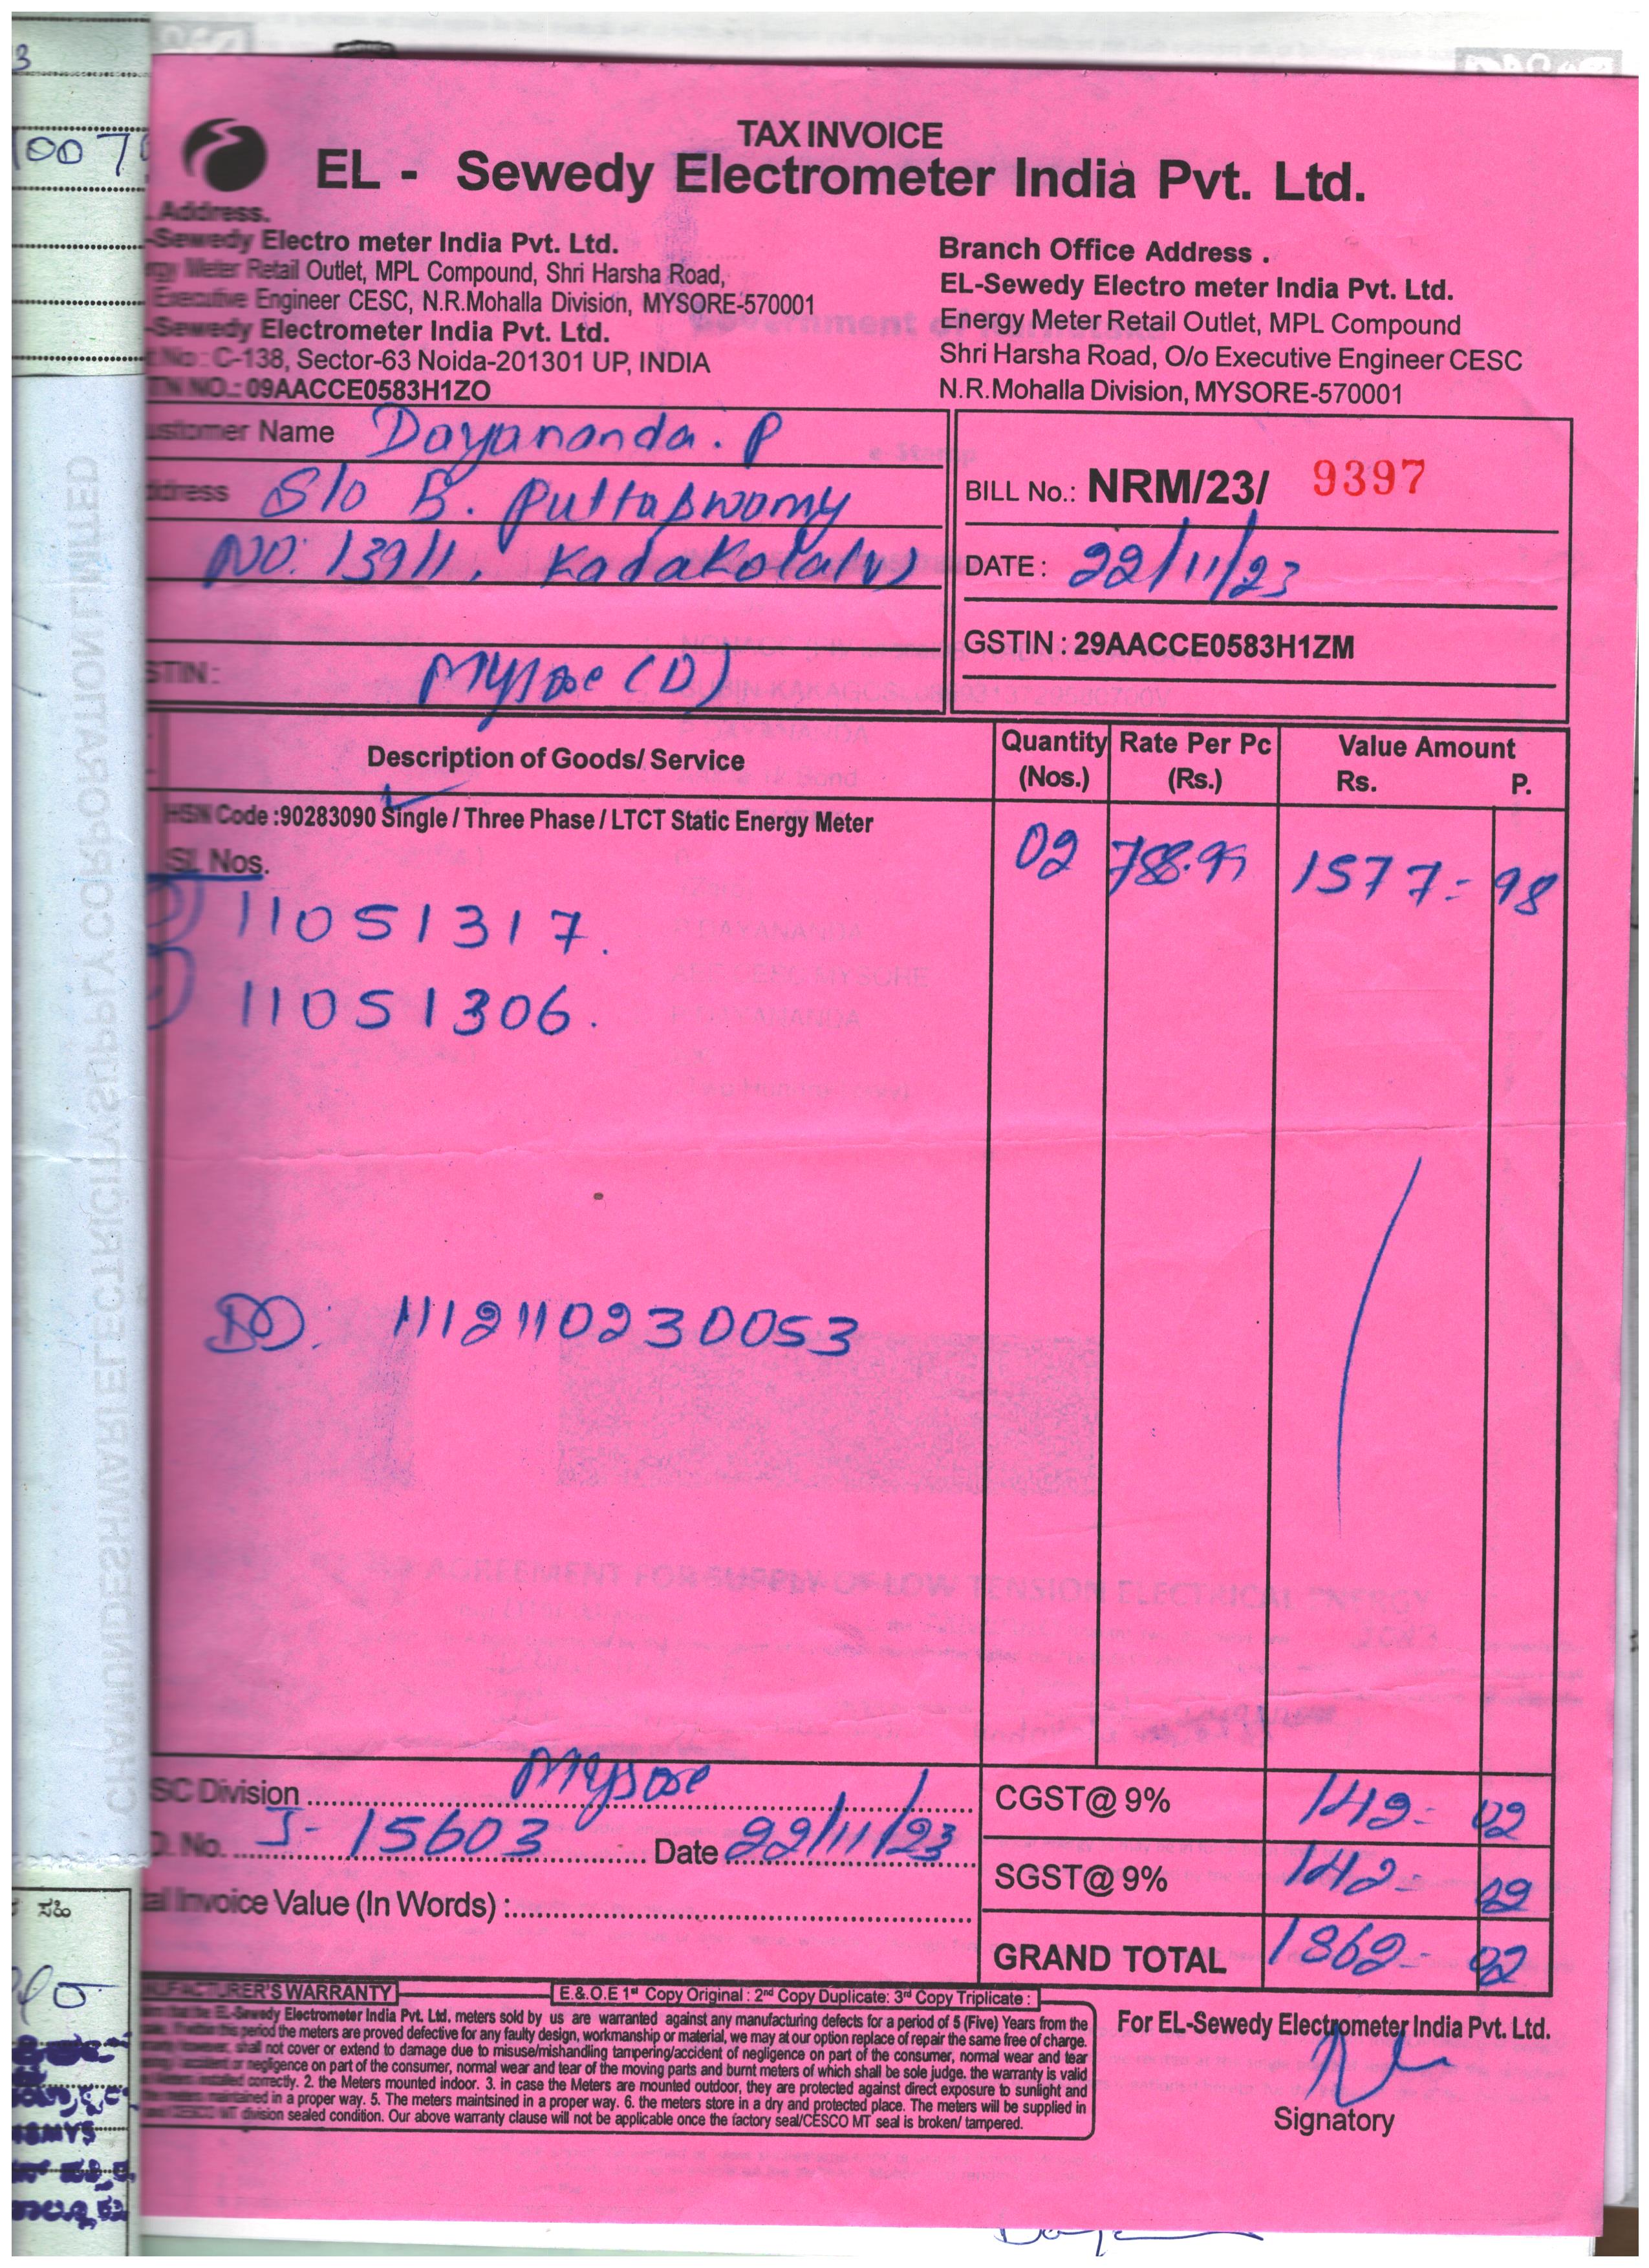 3
TAX INVOICE
EL - Sewedy Electrometer India Pvt. Ltd.
Address.
-Sewedy Electro meter India Pvt. Ltd.
Meter Retail Outlet, MPL Compound, Shri Harsha Road,
Executive Engineer CESC, N.R.Mohalla Division, MYSORE-570001
-Sewedy Electrometer India Pvt. Ltd.
No : C-138, Sector-63 Noida-201301 UP, INDIA
TN NO.: 09AACCE0583H1ZO
Branch Office Address .
EL-Sewedy Electro meter India Pvt. Ltd.
Energy Meter Retail Outlet, MPL Compound
Shri Harsha Road, O/o Executive Engineer CESC
N.R.Mohalla Division, MYSORE-570001
ustomer Name Dayananda. P
ddress S/o B. Puttaswamy
NO: 139/1, Kadakola(v)
STIN: Mysore (D)
BILL No.: NRM/23/ 9397
DATE : 22/11/23
GSTIN : 29AACCE0583H1ZM
Description of Goods/ Service Quantity (Nos.) Rate Per Pc (Rs.) Value Amount Rs. P.
HSN Code :90283090 Single / Three Phase / LTCT Static Energy Meter
02 788.99 1577= 98
SL Nos.
11051317.
11051306.
DD: 1112110230053
SC Division Mysore
CGST@ 9% 142= 02
No. J- 15603 Date 22/11/23
SGST@ 9% 142= 02
al Invoice Value (In Words) :
GRAND TOTAL 1862= 02
NUFACTURER'S WARRANTY
E.&.O.E 1st Copy Original : 2nd Copy Duplicate: 3rd Copy Triplicate :
the EL-Sewedy Electrometer India Pvt. Ltd. meters sold by us are warranted against any manufacturing defects for a period of 5 (Five) Years from the
If within this period the meters are proved defective for any faulty design, workmanship or material, we may at our option replace of repair the same free of charge.
shall not cover or extend to damage due to misuse/mishandling tampering/accident of negligence on part of the consumer, normal wear and tear
accident or negligence on part of the consumer, normal wear and tear of the moving parts and burnt meters of which shall be sole judge. the warranty is valid
Meters installed correctly. 2. the Meters mounted indoor. 3. in case the Meters are mounted outdoor, they are protected against direct exposure to sunlight and
maintained in a proper way. 5. The meters maintsined in a proper way. 6. the meters store in a dry and protected place. The meters will be supplied in
MT division sealed condition. Our above warranty clause will not be applicable once the factory seal/CESCO MT seal is broken/ tampered.
For EL-Sewedy Electrometer India Pvt. Ltd.
Signatory
ಸಹಿ